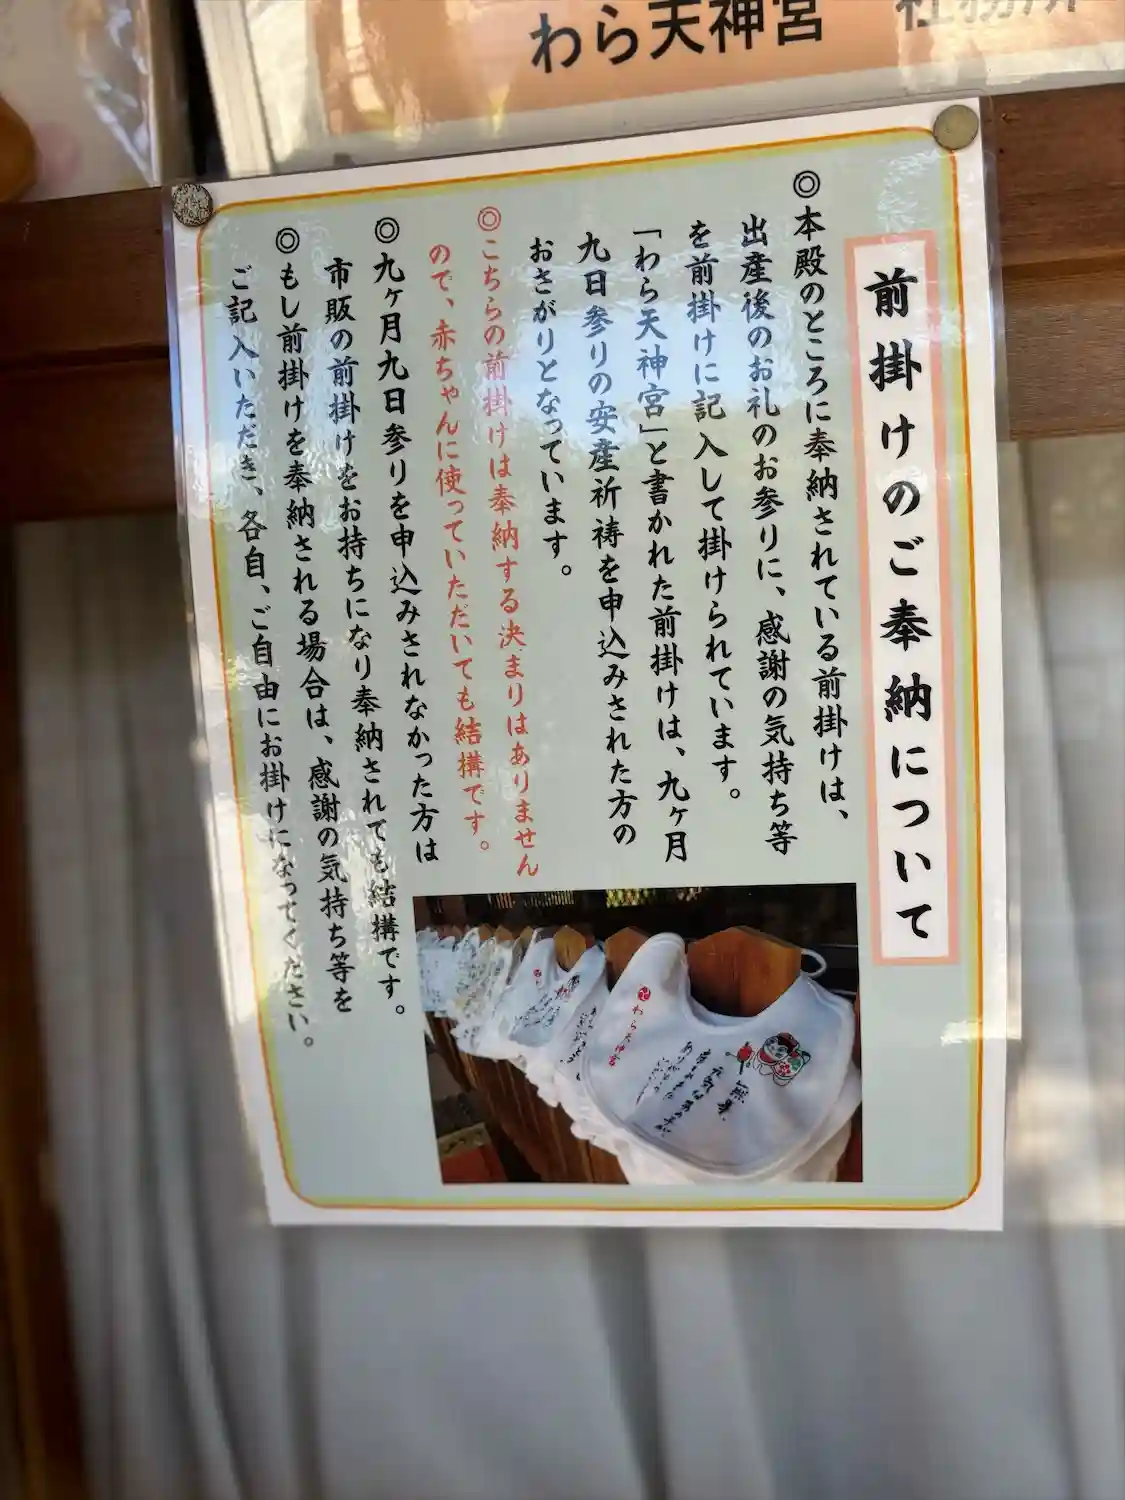 わら天神宮 社務所
前掛けのご奉納について
◎本殿のところに奉納されている前掛けは、
出産後のお礼のお参りに、感謝の気持ち等
を前掛けに記入して掛けられています。
「わら天神宮」と書かれた前掛けは、九ヶ月
九日参りの安産祈祷を申込みされた方の
おさがりとなっています。
◎こちらの前掛けは奉納する決まりはありません
ので、赤ちゃんに使っていただいても結構です。
◎九ヶ月九日参りを申込みされなかった方は
市販の前掛けをお持ちになり奉納されても結構です。
◎もし前掛けを奉納される場合は、感謝の気持ち等を
ご記入いただき、各自、ご自由にお掛けになってください。
わら天神宮